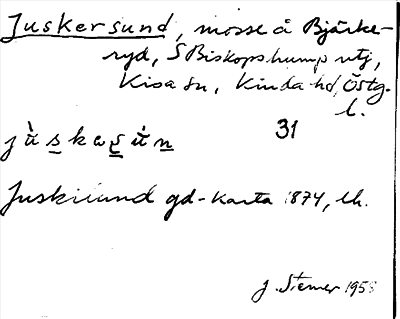 Juskersund, mosse å Bjärke-
ryd, S Biskopshump utj,
Kisa sn, Kinda hd, Östg.
l.
31
Juskilund gd-karta 1874, lh.
J. Stemer 1958